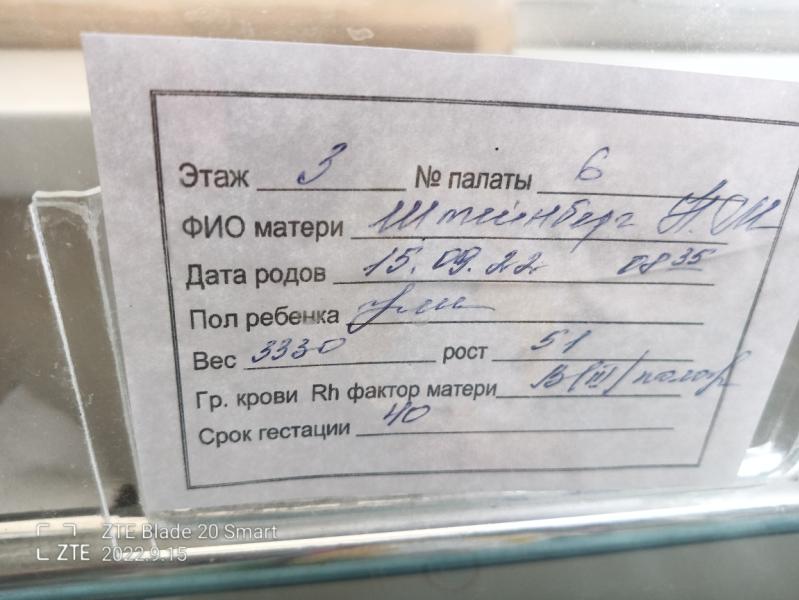 Этаж 3 № палаты 6
ФИО матери Штейнберг А. М
Дата родов 15.09.22 08 35
Пол ребенка
Вес 3330 рост 51
Гр. крови Rh фактор матери B(III)/полож
Срок гестации 40
ZTE Blade 20 Smart
ZTE 2022.9.15